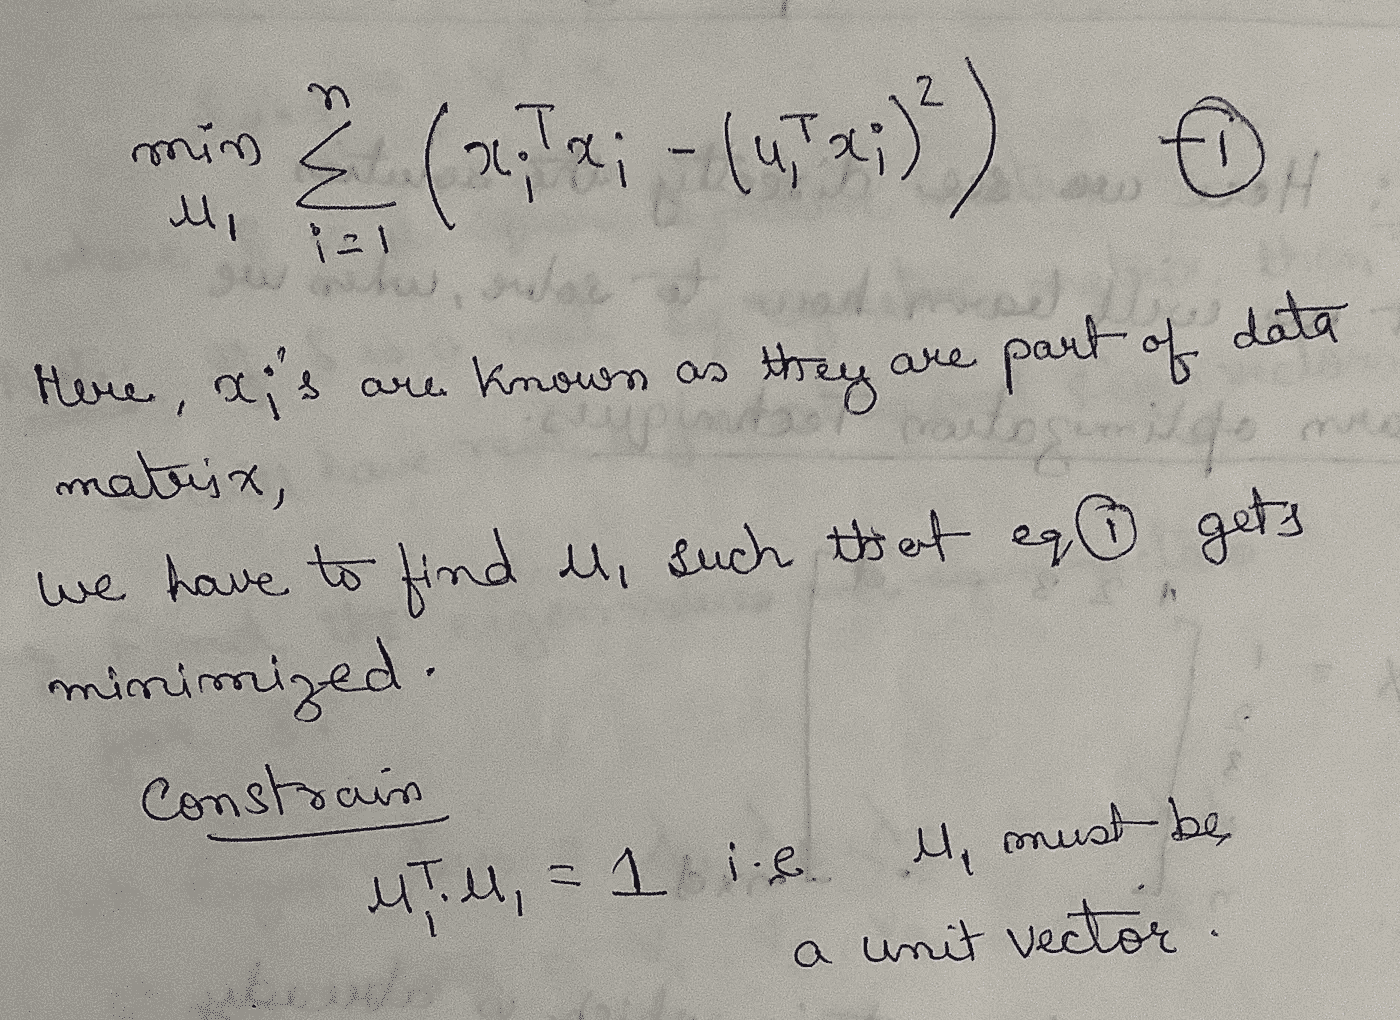 min_{u₁} Σ_{i=1}^{n} (xᵢᵀxᵢ - (u₁ᵀxᵢ)²) - ①
Here, xᵢ's are known as they are part of data
matrix,
we have to find u₁ such that eq ① gets
minimized.
Constrain
u₁ᵀ.u₁ = 1 i.e u₁ must be
a unit vector.